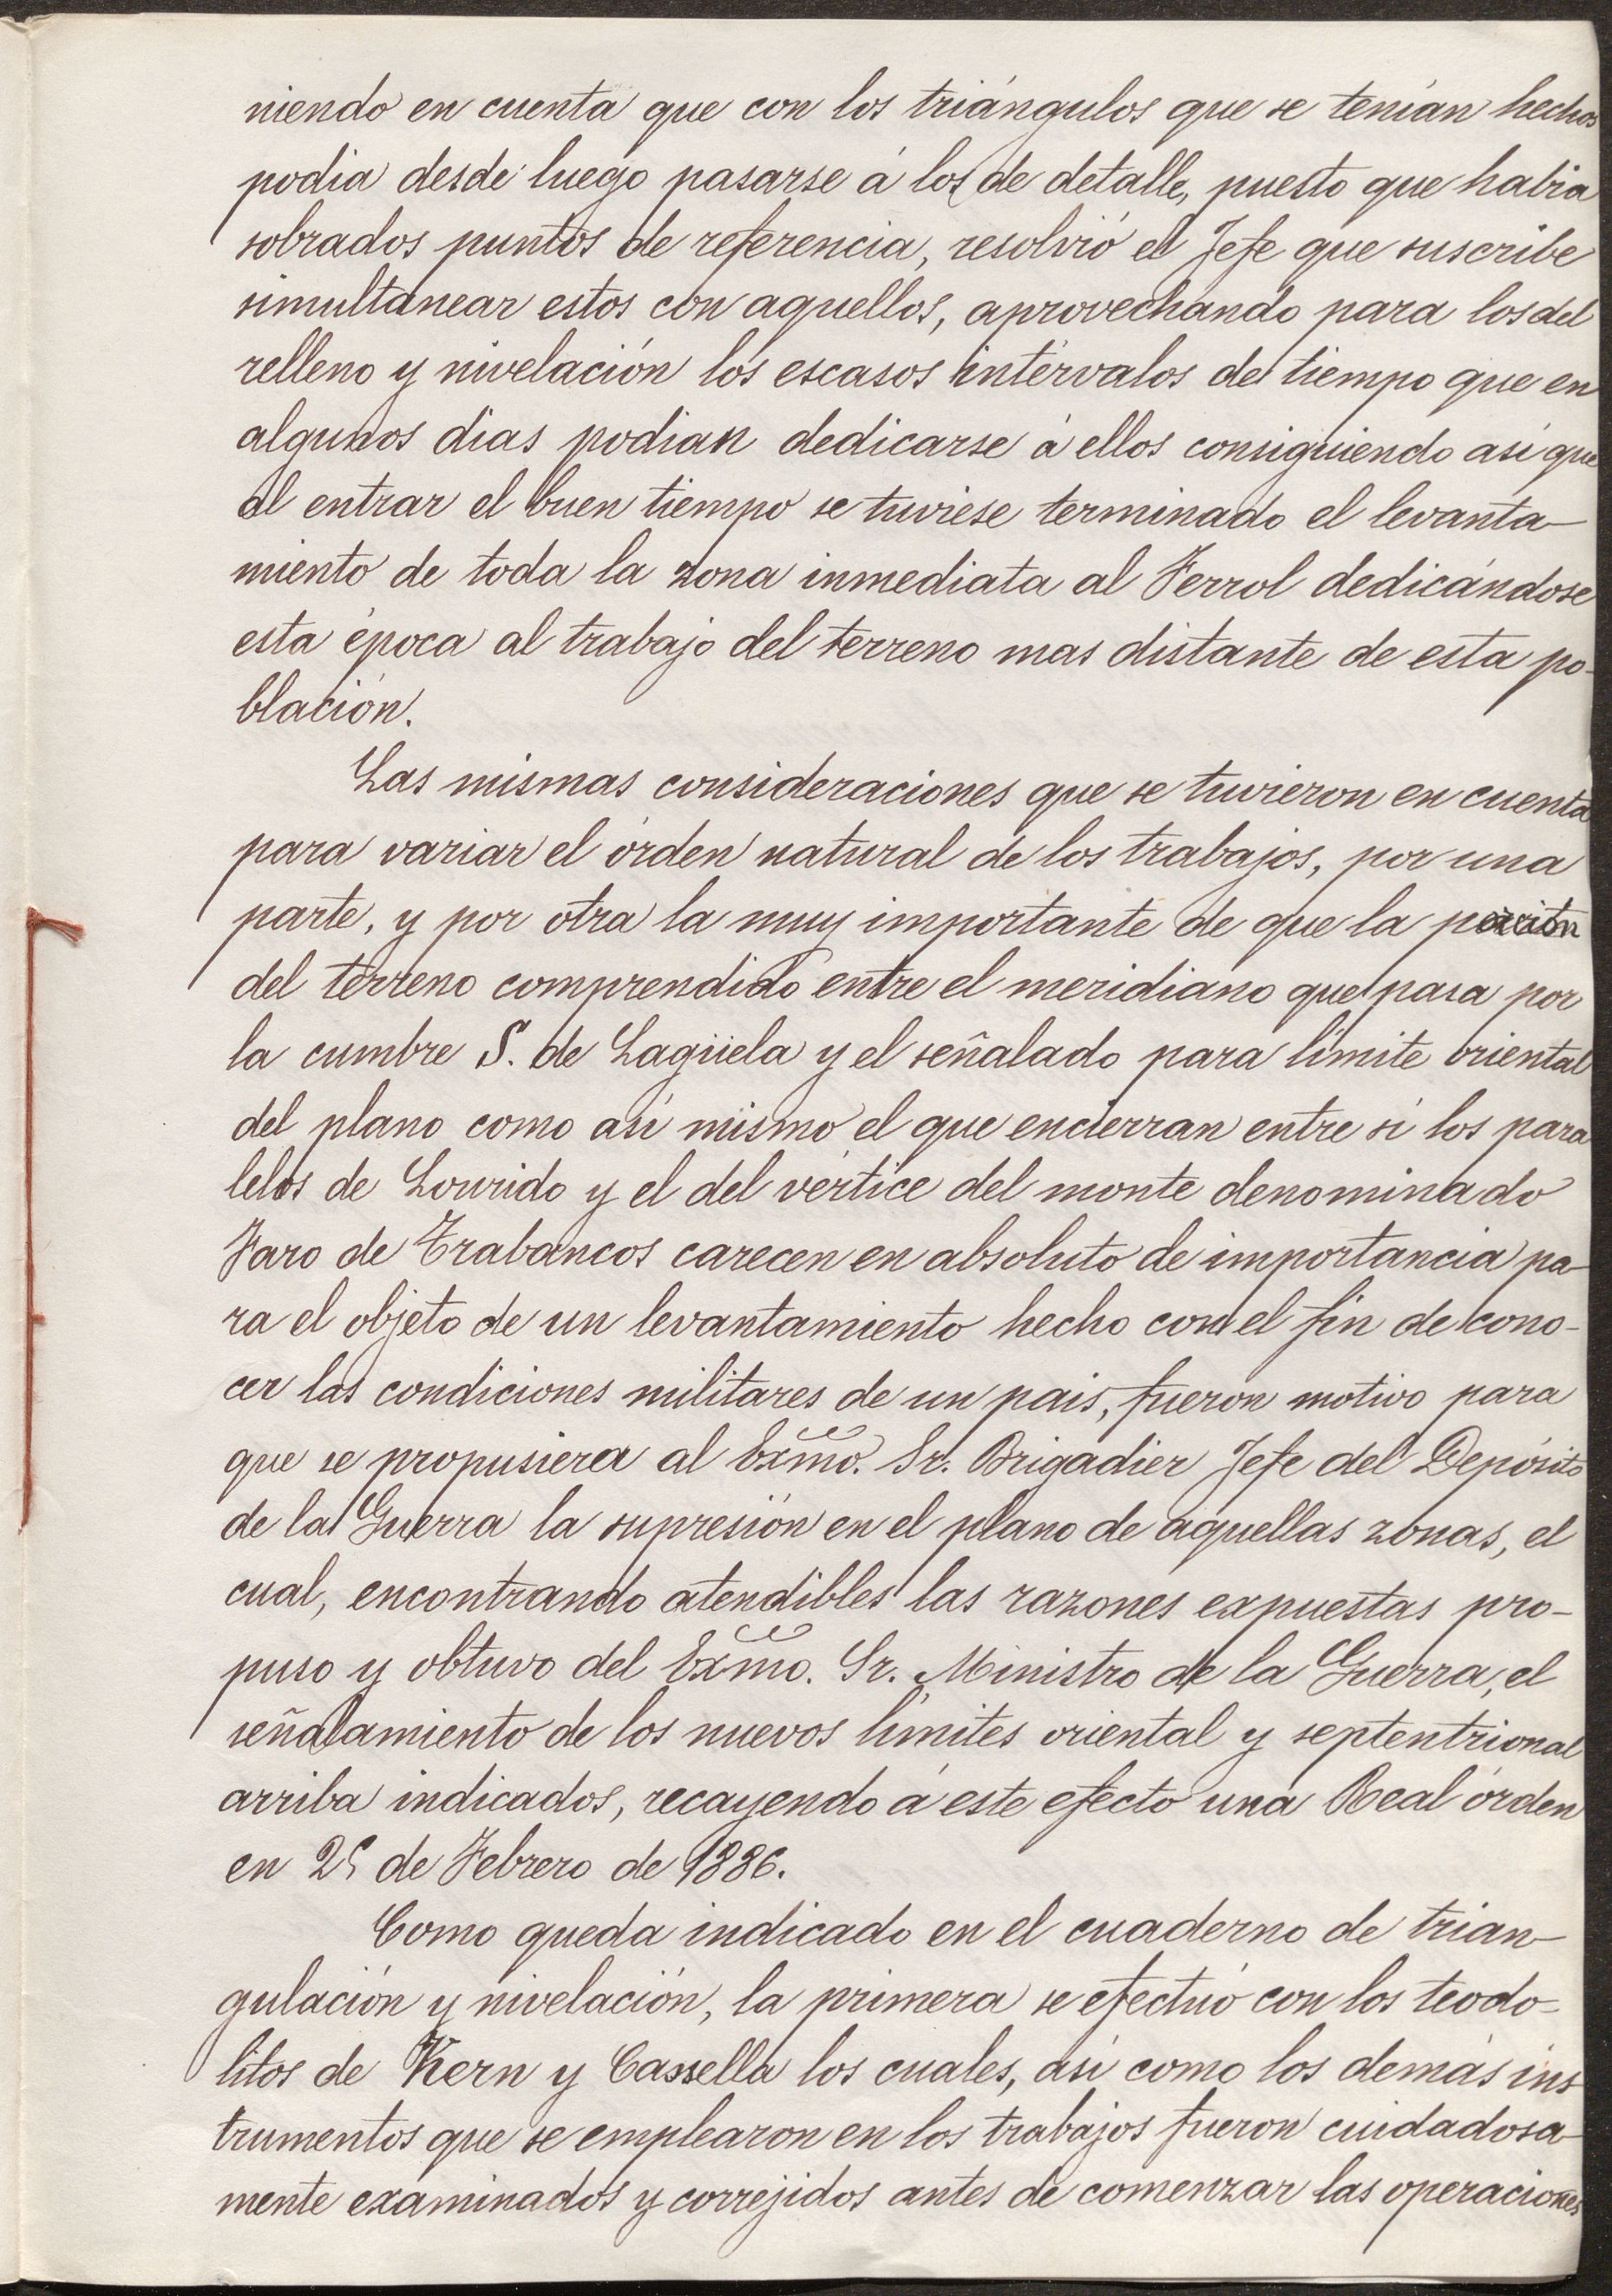 niendo en cuenta que con los triángulos que se tenían hechos
podia desde luego pasarse á los de detalle, puesto que habia
sobrados puntos de referencia, resolvió el Jefe que suscribe
simultanear estos con aquellos, aprovechando para los del
relleno y nivelación los escasos intérvalos de tiempo que en
algunos dias podian dedicarse á ellos consiguiendo así que
al entrar el buen tiempo se tuviese terminado el levanta-
miento de toda la zona inmediata al Ferrol dedicándose
esta época al trabajo del terreno mas distante de esta po-
blación.
Las mismas consideraciones que se tuvieron en cuenta
para variar el órden natural de los trabajos, por una
parte, y por otra la muy importante de que la porción
del terreno comprendido entre el meridiano que pasa por
la cumbre S. de Lagüela y el señalado para límite oriental
del plano como así mismo el que encierran entre sí los para
lelos de Lourido y el del vértice del monte denominado
Faro de Trabancos carecen en absoluto de importancia pa-
ra el objeto de un levantamiento hecho con el fin de cono-
cer las condiciones militares de un pais, fueron motivo para
que se propusiera al Exmo. Sr. Brigadier Jefe del Depósito
de la Guerra la supresión en el plano de aquellas zonas, el
cual, encontrando atendibles las razones expuestas pro-
puso y obtuvo del Exmo. Sr. Ministro de la Guerra, el
señalamiento de los nuevos límites oriental y septentrional
arriba indicados, recayendo á este efecto una Real órden
en 25 de Febrero de 1886.
Como queda indicado en el cuaderno de trian-
gulación y nivelación, la primera se efectuó con los teodo-
litos de Kern y Cassella los cuales, así como los demás ins-
trumentos que se emplearon en los trabajos fueron cuidadosa-
mente examinados y correjidos antes de comenzar las operaciones